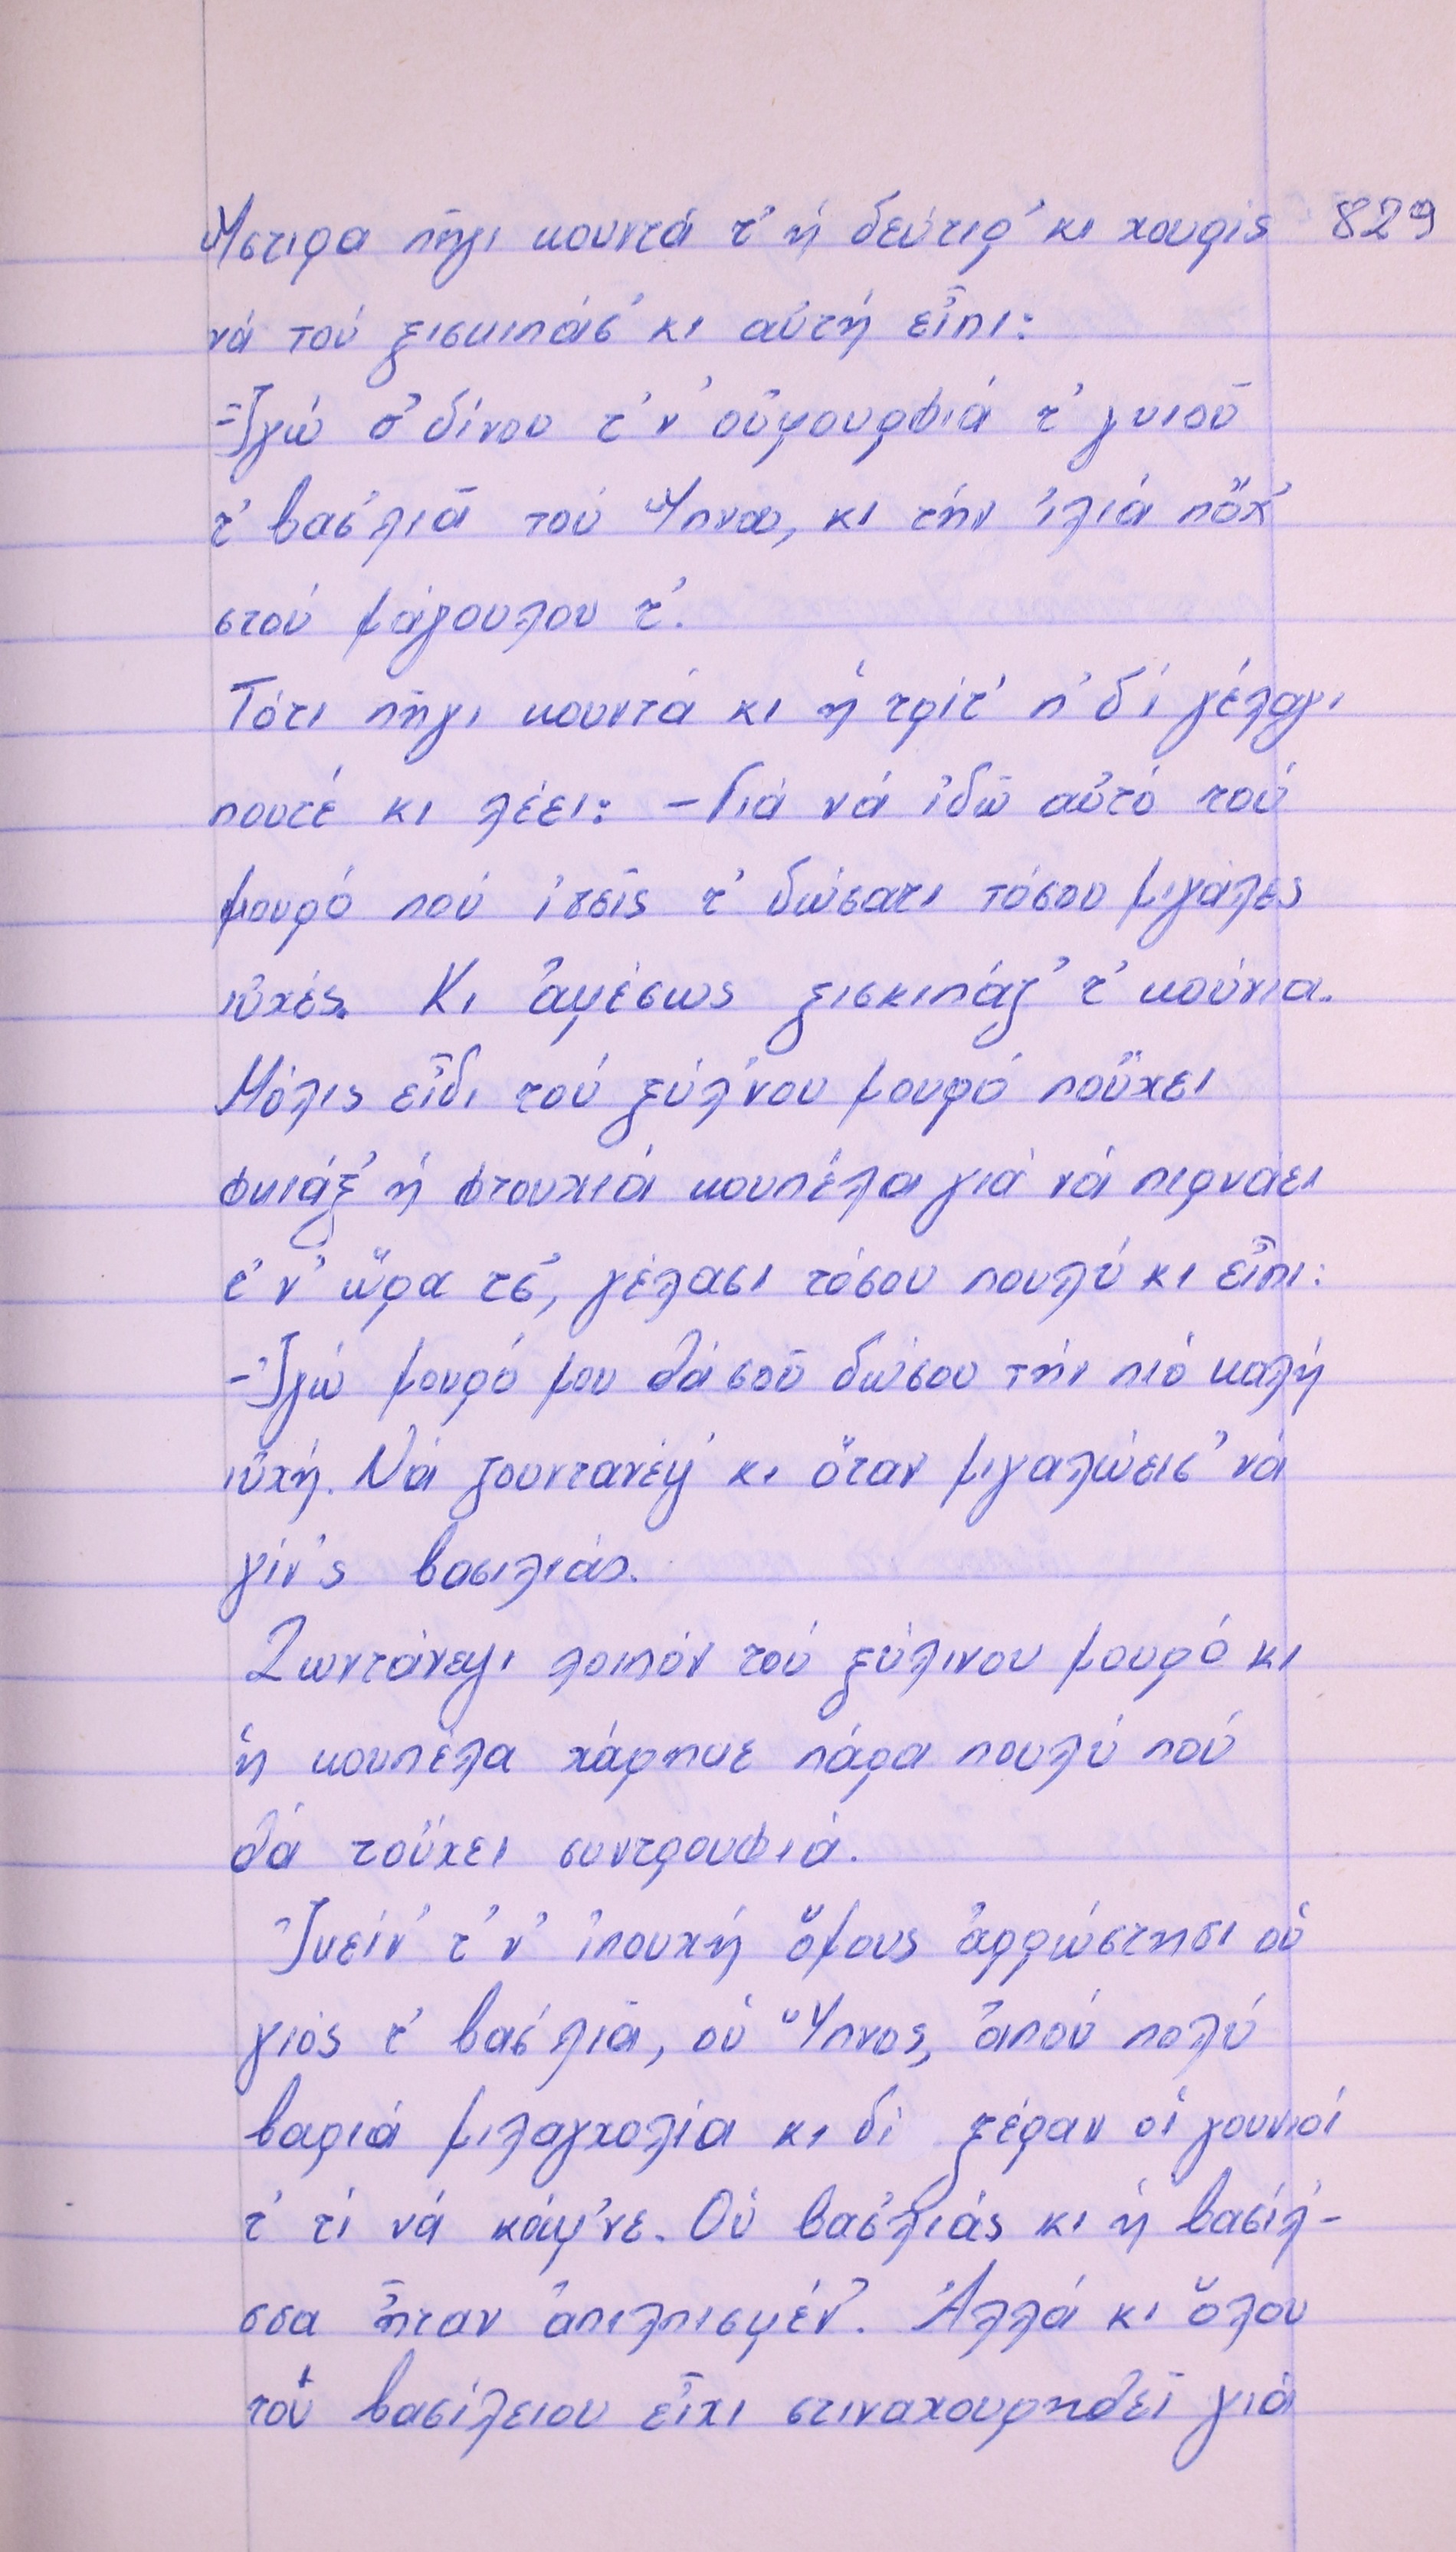 Ὕστιρα πῆγι κουντά τ' ἡ δεύτιρ' κι χουρίς 829
νά τού ξισκιπάσ' κι αὐτή εἶπι:
-Ἰγώ σ' δίνου τ'ν' οὐμουρφιά τ' γυιοῦ
τ' βασ'λιᾶ τού Ὕπνου, κι τήν ἰλιά πὄχ'
στού μάγουλου τ'.
Τότι πῆγι κουντά κι ἡ τρίτ' π' δί γέλαγι
πουτέ κι λέει: -Γιά νά ἰδῶ αὐτό τού
μουρό πού ἰσεῖς τ' δώσατι τόσου μιγάλες
ιὐχές. Κι ἀμέσως ξισκιπάζ' τ' κούνια.
Μόλις εἶδι τού ξύλ'νου μουρό ποὔχει
φκιάξ' ἡ φτουχιά κουπέλα γιά νά πιρνάει
τ'ν' ὥρα τσ', γέλασι τόσου πουλύ κι εἶπι:
-Ἰγώ μουρό μου θά σοῦ δώσου τήν πιό καλή
ιὐχή. Νά ζουντανέψ' κι ὅταν μιγαλώεισ' νά
γίν'ς βασιλιάς.
Ζωντάνεψι λοιπόν τού ξύλινου μουρό κι
ἡ κουπέλα χάρηκε πάρα πουλύ πού
θά τοὔχει συντρουφιά.
Ἰκείν' τ'ν' ἰπουχή ὅμους ἀρρώστησι οὑ
γιός τ' βασ'λιᾶ, οὑ Ὕπνος, ἀπού πολύ
βαριά μιλαγχολία κι δί ξέραν οἱ γουνιοί
τ' τί νά κάμ'νε. Οὑ βασ'λιάς κι ἡ βασίλ'-
σσα ἦταν ἀπιλπισμέν'. Ἀλλά κι ὅλου
τού βασίλειου εἶχι στιναχουρηθεῖ γιά